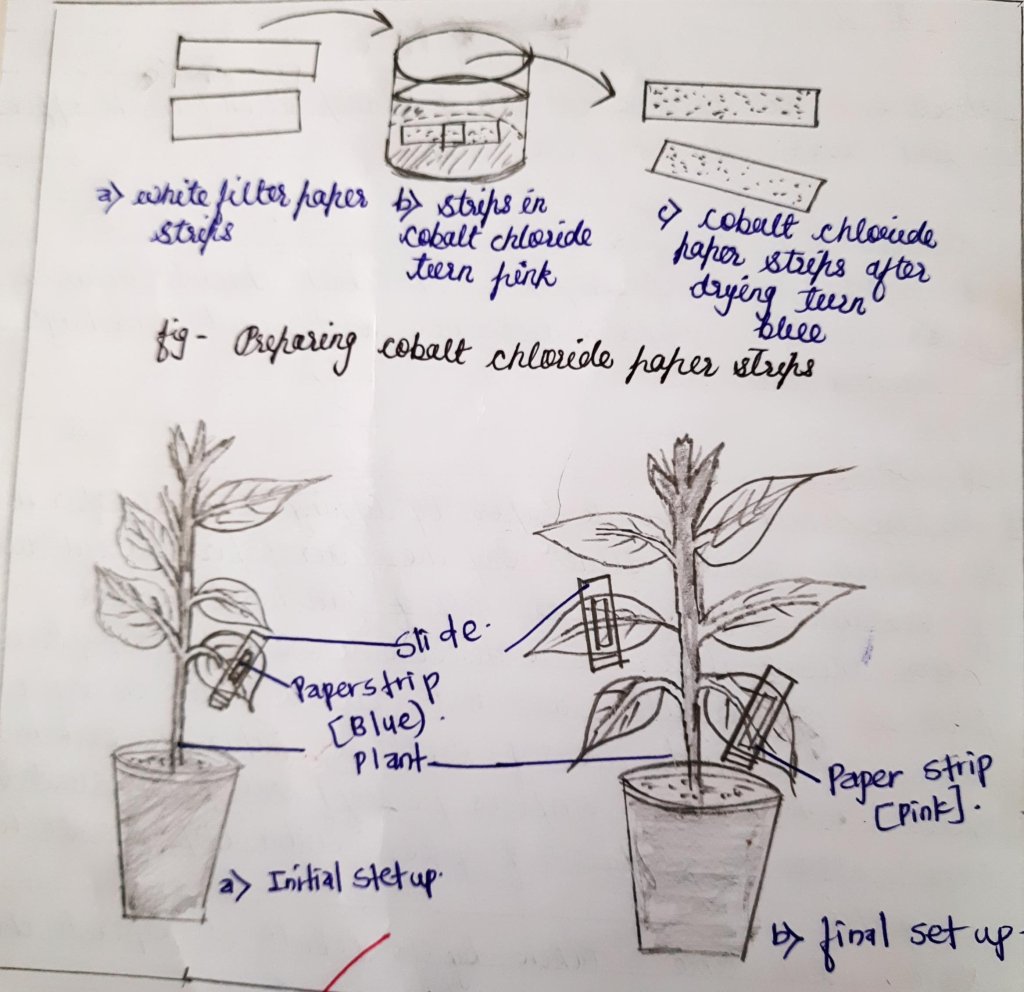 a) white filter paper
strips
b) strips in
cobalt chloride
turn pink
c) cobalt chloride
paper strips after
drying turn
blue
fig- Preparing cobalt chloride paper strips
Slide.
Paperstrip
[Blue).
Plant
Paper strip
[Pink].
a) Initial stetup.
b) final set up.